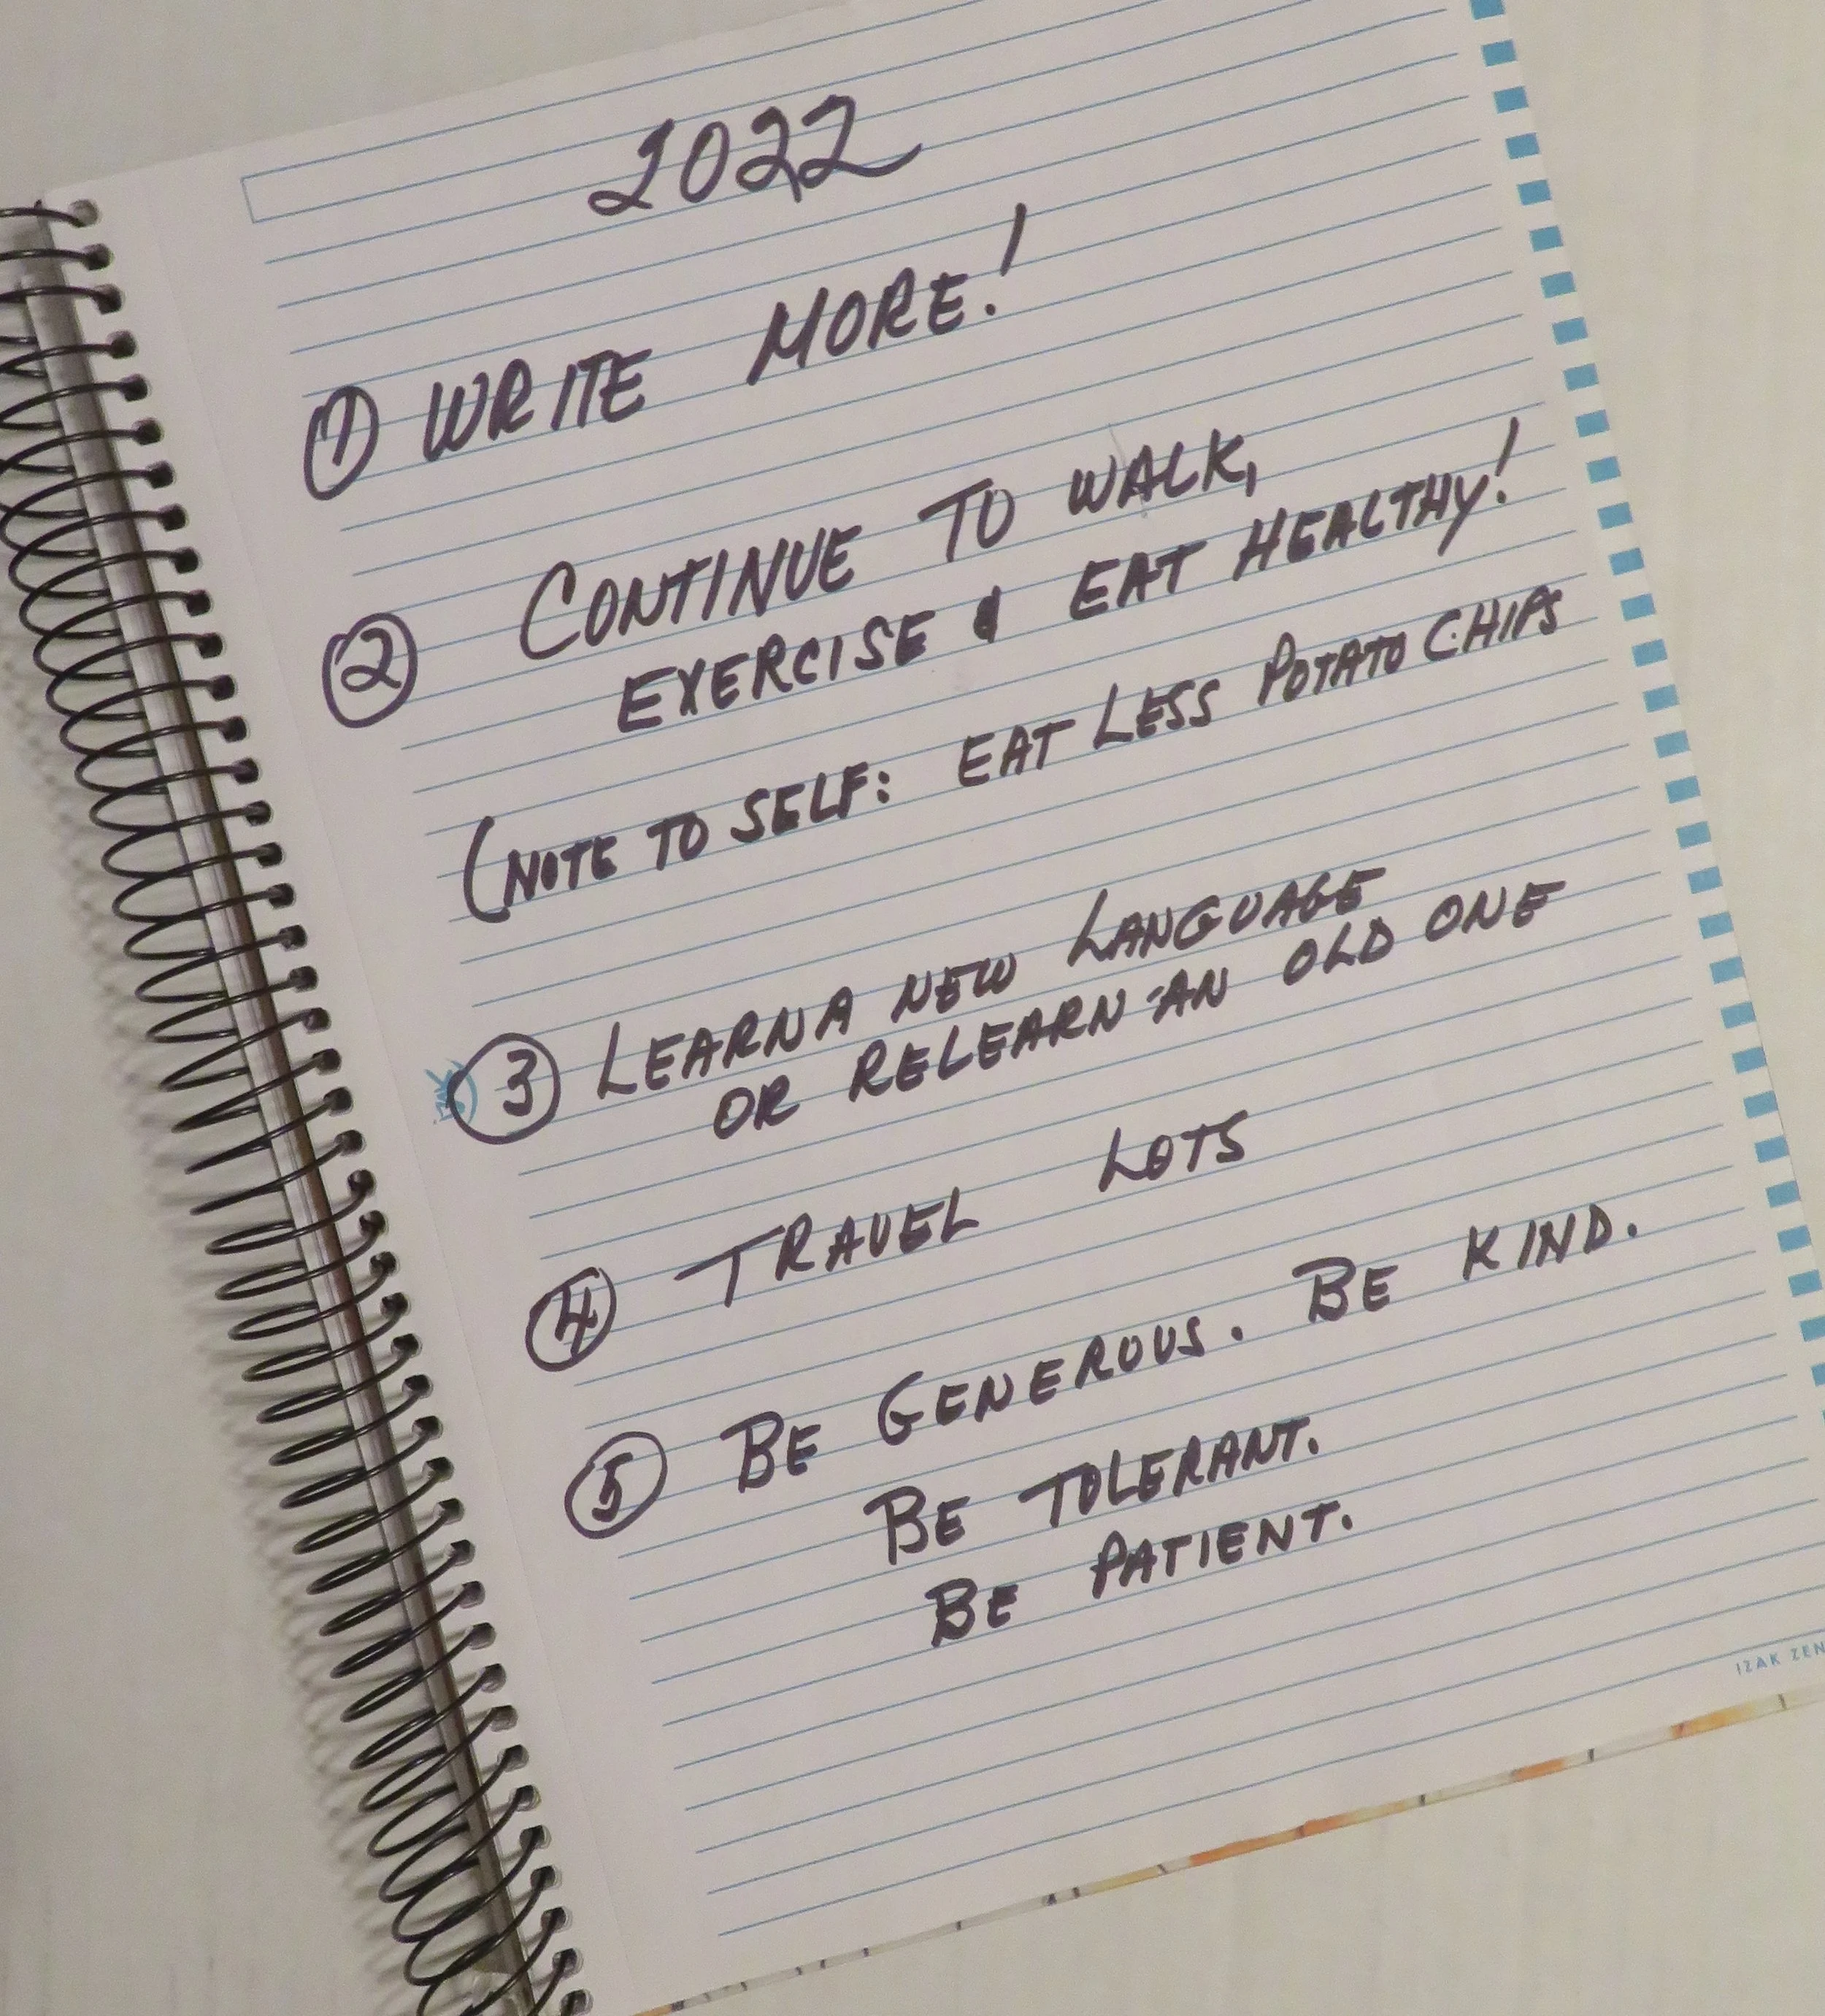 2022
① WRITE MORE!
② CONTINUE TO WALK,
EXERCISE & EAT HEALTHY!
(NOTE TO SELF: EAT LESS POTATO CHIPS
③ LEARN A NEW LANGUAGE
OR RELEARN AN OLD ONE
④ TRAVEL LOTS
⑤ BE GENEROUS. BE KIND.
BE TOLERANT.
BE PATIENT.
IZAK ZEN